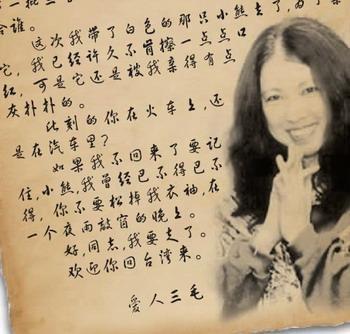 一批三
会谁。
这次我带了白色的那只小熊去了,为了亲
它,我已经许久不肯擦一点点口
红,可是它还是被我亲得有点
灰扑扑的。
此刻的你在火车上,还
是在汽车里?
如果我不回来了要记
住,小熊,我曾经已不得已不
得,你不要松掉我衣袖,在
一个夜雨敲窗的晚上。
好,同志,我要走了。
欢迎你回台湾来。
爱人三毛